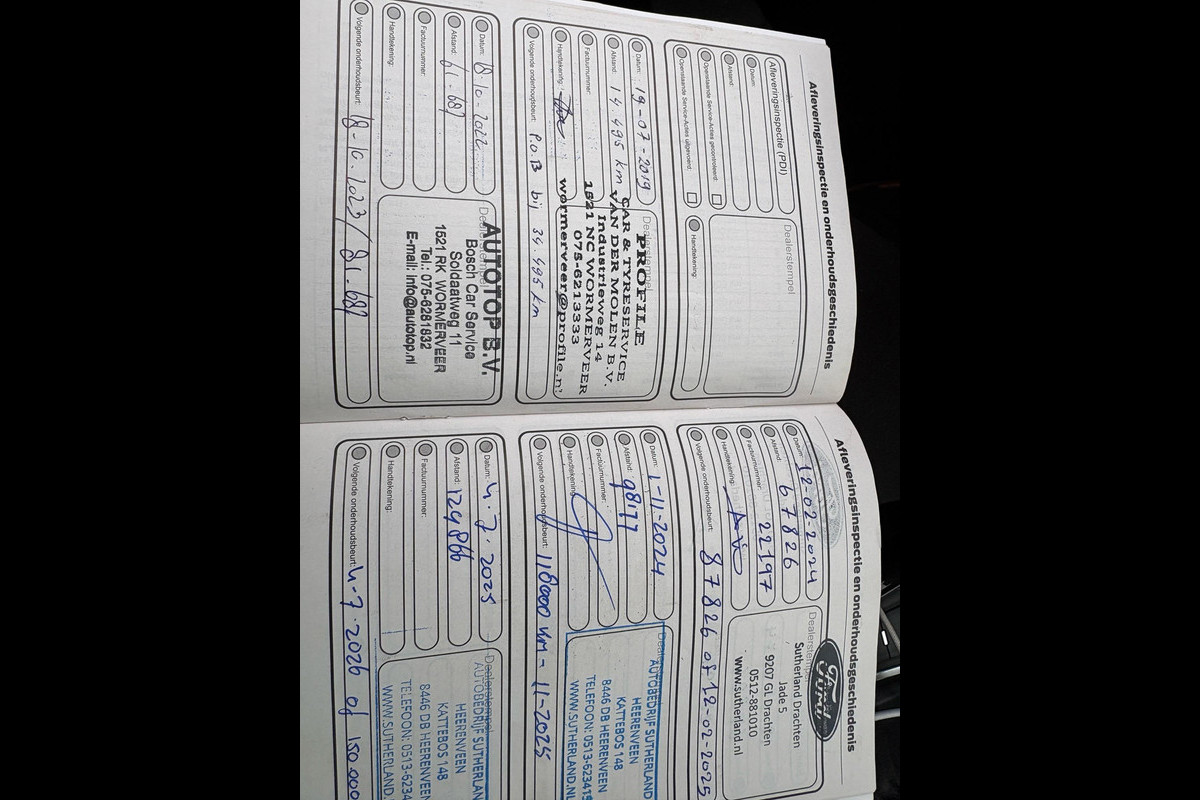 Afleveringsinspectie en onderhoudsgeschiedenis
Afleveringsinspectie (PDI)
Datum:
Afstand:
Openstaande Service-Acties gecontroleerd:
Openstaande Service-Acties uitgevoerd:
Dealerstempel
Handtekening:
Datum: 19-07-2019
Afstand: 14.495 km
Factuurnummer:
Handtekening:
Volgende onderhoudsbeurt: P.O.B bij 34.495 km
Dealerstempel
PROFILE
CAR & TYRESERVICE
VAN DER MOLEN B.V.
Industrieweg 14
1521 NC WORMERVEER
075-6213333
wormerveer@profile.nl
Datum: 18-10-2022
Afstand: 61.689
Factuurnummer:
Handtekening:
Volgende onderhoudsbeurt: 18-10-2023 / 81.689
Dealerstempel
AUTOTOP B.V.
Bosch Car Service
Soldaatweg 11
1521 RK WORMERVEER
Tel.: 075-6281832
E-mail: info@autotop.nl
Afleveringsinspectie en onderhoudsgeschiedenis
Datum: 12-02-2024
Afstand: 67826
Factuurnummer: 22197
Handtekening:
Volgende onderhoudsbeurt: 87826 of 12-02-2025
Dealerstempel
Ford
Sutherland Drachten
Jade 5
9207 GL Drachten
0512-881010
www.sutherland.nl
Datum: 1-11-2024
Afstand: 98177
Factuurnummer:
Handtekening:
Volgende onderhoudsbeurt: 118000 km - 11-2025
Dealerstempel
AUTOBEDRIJF SUTHERLAND
HEERENVEEN
KATTEBOS 148
8446 DB HEERENVEEN
TELEFOON: 0513-623419
WWW.SUTHERLAND.NL
Datum: 4-7-2025
Afstand: 129866
Factuurnummer:
Handtekening:
Volgende onderhoudsbeurt: 4-7-2026 of 150000
Dealerstempel
AUTOBEDRIJF SUTHERLAN
HEERENVEEN
KATTEBOS 148
8446 DB HEERENVEEN
TELEFOON: 0513-6234
WWW.SUTHERLAND.